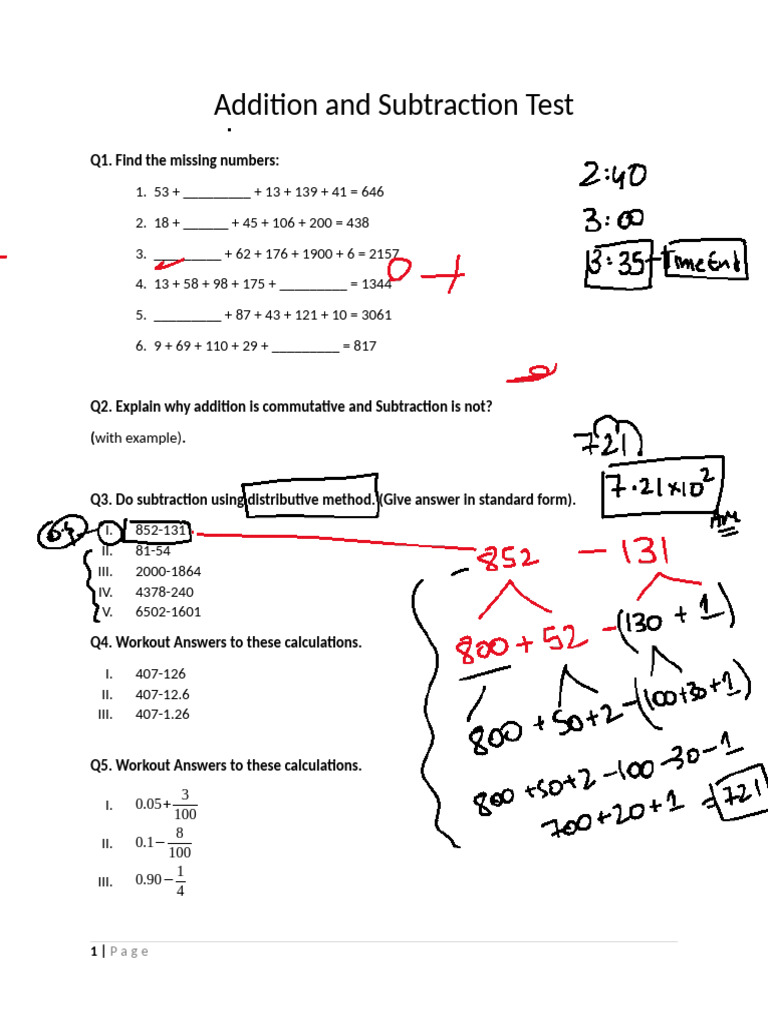 Addition and Subtraction Test
Q1. Find the missing numbers:
1. 53 + _________ + 13 + 139 + 41 = 646
2. 18 + ______ + 45 + 106 + 200 = 438
3. _________ + 62 + 176 + 1900 + 6 = 2157
4. 13 + 58 + 98 + 175 + _________ = 1344
5. _________ + 87 + 43 + 121 + 10 = 3061
6. 9 + 69 + 110 + 29 + _________ = 817
2:40
3:00
3:35 Time End
Q2. Explain why addition is commutative and Subtraction is not?
(with example).
721
7.21×10²
Ans
Q3. Do subtraction using distributive method. (Give answer in standard form).
I. 852-131
II. 81-54
III. 2000-1864
IV. 4378-240
V. 6502-1601
852 - 131
800 + 52 - (130 + 1)
800 + 50+2 - (100+30+1)
800 +50+2 -100 -30 -1
700+20+1 = 721
Q4. Workout Answers to these calculations.
I. 407-126
II. 407-12.6
III. 407-1.26
Q5. Workout Answers to these calculations.
I. 0.05+3/100
II. 0.1−8/100
III. 0.90−1/4
1 | Page